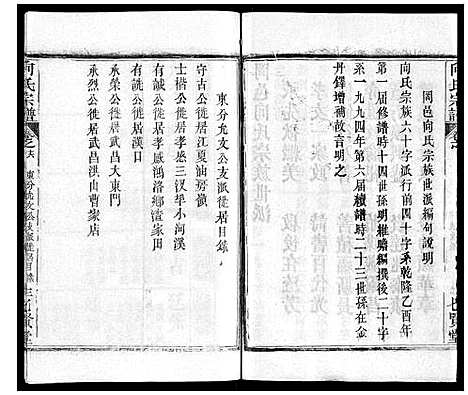 向氏宗譜
岡邑向氏宗族世派編句說明
向氏宗族六十字派行前四十字系乾隆乙酉年
第一屆修譜時十四世孫明雅贍編撰後二十字
至一九九四年第六屆續譜時二十三世孫在金
丹鐸增補故言明之
七賢堂
東分允文公支派徙居目錄
守古公徙居江夏油房嶺
士楷公徙居孝感三汊埠小河溪
承徙居孝感鴻洛鄉濳家田
承公徙居漢口
承榮公徙居武昌大東門
承烈公徙居武昌洪山曹家店
向氏宗譜
卷之六
東分允文公支派徙居目錄
七賢堂